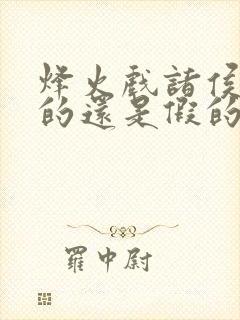 烽火戲諸侯
的還是假的
羅中尉